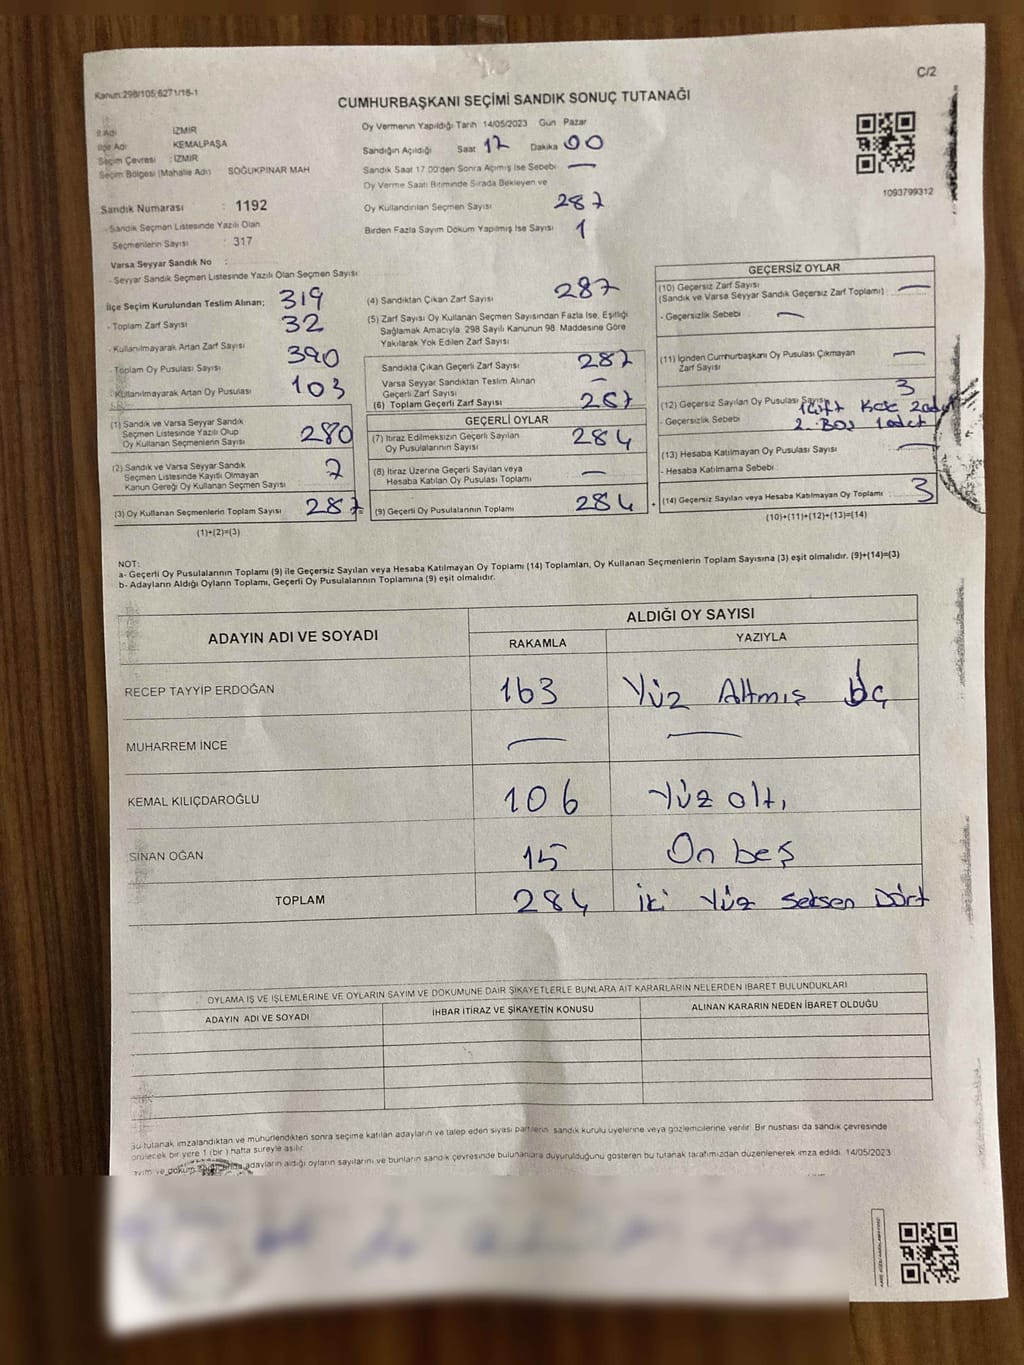 C/2
Kanun:298/105;6271/18-1
CUMHURBAŞKANI SEÇİMİ SANDIK SONUÇ TUTANAĞI
İl Adı : İZMİR
İlçe Adı : KEMALPAŞA
Seçim Çevresi : İZMİR
Seçim Bölgesi (Mahalle Adı) SOĞUKPINAR MAH
Sandık Numarası : 1192
- Sandık Seçmen Listesinde Yazılı Olan
Seçmenlerin Sayısı : 317
Varsa Seyyar Sandık No :
- Seyyar Sandık Seçmen Listesinde Yazılı Olan Seçmen Sayısı:
Oy Vermenin Yapıldığı Tarih 14/05/2023 Gün Pazar
Sandığın Açıldığı Saat 17 Dakika 00
Sandık Saat 17.00'den Sonra Açımış İse Sebebi —
Oy Verme Saati Bitiminde Sırada Bekleyen ve
Oy Kullandırılan Seçmen Sayısı 287
Birden Fazla Sayım Döküm Yapılmış İse Sayısı 1
1093799312
İlçe Seçim Kurulundan Teslim Alınan; 319
- Toplam Zarf Sayısı 32
- Kullanılmayarak Artan Zarf Sayısı 390
- Toplam Oy Pusulası Sayısı 103
- Kullanılmayarak Artan Oy Pusulası
(1) Sandık ve Varsa Seyyar Sandık
Seçmen Listesinde Yazılı Olup
Oy Kullanan Seçmenlerin Sayısı 280
(2) Sandık ve Varsa Seyyar Sandık
Seçmen Listesinde Kayıtlı Olmayan
Kanun Gereği Oy Kullanan Seçmen Sayısı 7
(3) Oy Kullanan Seçmenlerin Toplam Sayısı 287
(1)+(2)=(3)
(4) Sandıktan Çıkan Zarf Sayısı 287
(5) Zarf Sayısı Oy Kullanan Seçmen Sayısından Fazla İse, Eşitliği
Sağlamak Amacıyla 298 Sayılı Kanunun 98. Maddesine Göre
Yakılarak Yok Edilen Zarf Sayısı
Sandıkta Çıkan Geçerli Zarf Sayısı 287
Varsa Seyyar Sandıktan Teslim Alınan
Geçerli Zarf Sayısı —
(6) Toplam Geçerli Zarf Sayısı 287
GEÇERLİ OYLAR
(7) İtiraz Edilmeksizin Geçerli Sayılan
Oy Pusulalarının Sayısı 284
(8) İtiraz Üzerine Geçerli Sayılan veya
Hesaba Katılan Oy Pusulası Toplamı —
(9) Geçerli Oy Pusulalarının Toplamı 284
GEÇERSİZ OYLAR
(10) Geçersiz Zarf Sayısı
(Sandık ve Varsa Seyyar Sandık Geçersiz Zarf Toplamı) —
- Geçersizlik Sebebi —
(11) İçinden Cumhurbaşkanı Oy Pusulası Çıkmayan
Zarf Sayısı —
3
(12) Geçersiz Sayılan Oy Pusulası Sayısı
- Geçersizlik Sebebi 2. Boş 1 adet
(13) Hesaba Katılmayan Oy Pusulası Sayısı —
- Hesaba Katılmama Sebebi
(14) Geçersiz Sayılan veya Hesaba Katılmayan Oy Toplamı 3
(10)+(11)+(12)+(13)=(14)
NOT:
a- Geçerli Oy Pusulalarının Toplamı (9) ile Geçersiz Sayılan veya Hesaba Katılmayan Oy Toplamı (14) Toplamları, Oy Kullanan Seçmenlerin Toplam Sayısına (3) eşit olmalıdır. (9)+(14)=(3)
b- Adayların Aldığı Oyların Toplamı, Geçerli Oy Pusulalarının Toplamına (9) eşit olmalıdır.
ADAYIN ADI VE SOYADI ALDIĞI OY SAYISI
RAKAMLA YAZIYLA
RECEP TAYYİP ERDOĞAN 163 Yüz Altmış Üç
MUHARREM İNCE — —
KEMAL KILIÇDAROĞLU 106 Yüz altı
SİNAN OĞAN 15 On beş
TOPLAM 284 İki Yüz Seksen Dört
OYLAMA İŞ VE İŞLEMLERİNE VE OYLARIN SAYIM VE DÖKÜMÜNE DAİR ŞİKAYETLERLE BUNLARA AİT KARARLARIN NELERDEN İBARET BULUNDUKLARI
ADAYIN ADI VE SOYADI İHBAR İTİRAZ VE ŞİKAYETİN KONUSU ALINAN KARARIN NEDEN İBARET OLDUĞU
Bu tutanak imzalandıktan ve mühürlendikten sonra seçime katılan adayların ve talep eden siyasi partilerin sandık kurulu üyelerine veya gözlemcilerine verilir. Bir nüshası da sandık çevresinde
görülecek bir yere 1 (bir) hafta süreyle asılır.
Sayım ve döküm adayların aldığı oyların sayılarını ve bunların sandık çevresinde bulunanlara duyurulduğunu gösteren bu tutanak tarafımızdan düzenlenerek imza edildi. 14/05/2023